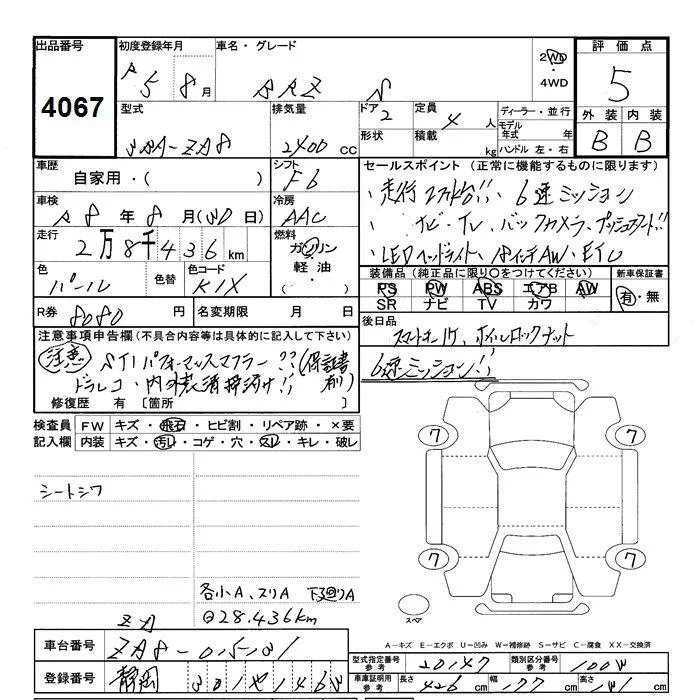 出品番号 初度登録年月 車名・グレード 2WD・4WD 評価点
4067 5年 8月 BRZ S 5
型式 排気量 ドア 定員 ディーラー・並行 外装 内装
ZA8 2400 CC 2 4人 モデル年式 年 B B
形状 積載 kg ハンドル 左・右
車歴 シフト セールスポイント (正常に機能するものに限ります)
自家用・( ) F6 ・走行 2万km台!! ・6速ミッション
車検 冷房 ・ナビ・TV、バックカメラ、プッシュスタート!!
8年 8月( 日) AAC ・LEDヘッドライト、18インチAW、ETC
走行 燃料 装備品(純正品に限り○をつけてください) 新車保証書
2万8千436km ガソリン・軽油・( ) PS PW ABS エアB AW 有・無
色 色替 色コード SR ナビ TV カワ
パール K1X 後日品
R券 8080円 名変期限 月 日 スマートキー1ケ、ホイルロックナット
注意事項申告欄(不具合内容等は具体的に記入して下さい) 6速ミッション!!
注意 STIパフォーマンスマフラー??(保証書有)
ドラレコ、内外装清掃済け!!
修復歴 有 〔箇所 〕
検査員 FW キズ・飛石・ヒビ割・リペア跡・×要
記入欄 内装 キズ・汚れ・コゲ・穴・スレ・キレ・破レ
シートシワ
7 7
7 7
各小A、スリA 下廻りA
28.436km
スペア
A-キズ E-エクボ U-凹み W-補修跡 S-サビ C-腐食 XX-交換済
車台番号 ZA8-015131 型式指定番号 参考 20147 類別区分番号 参考
登録番号 静岡 301 車庫証明用 参考 長さ 426cm 幅 177cm 高さ 131cm